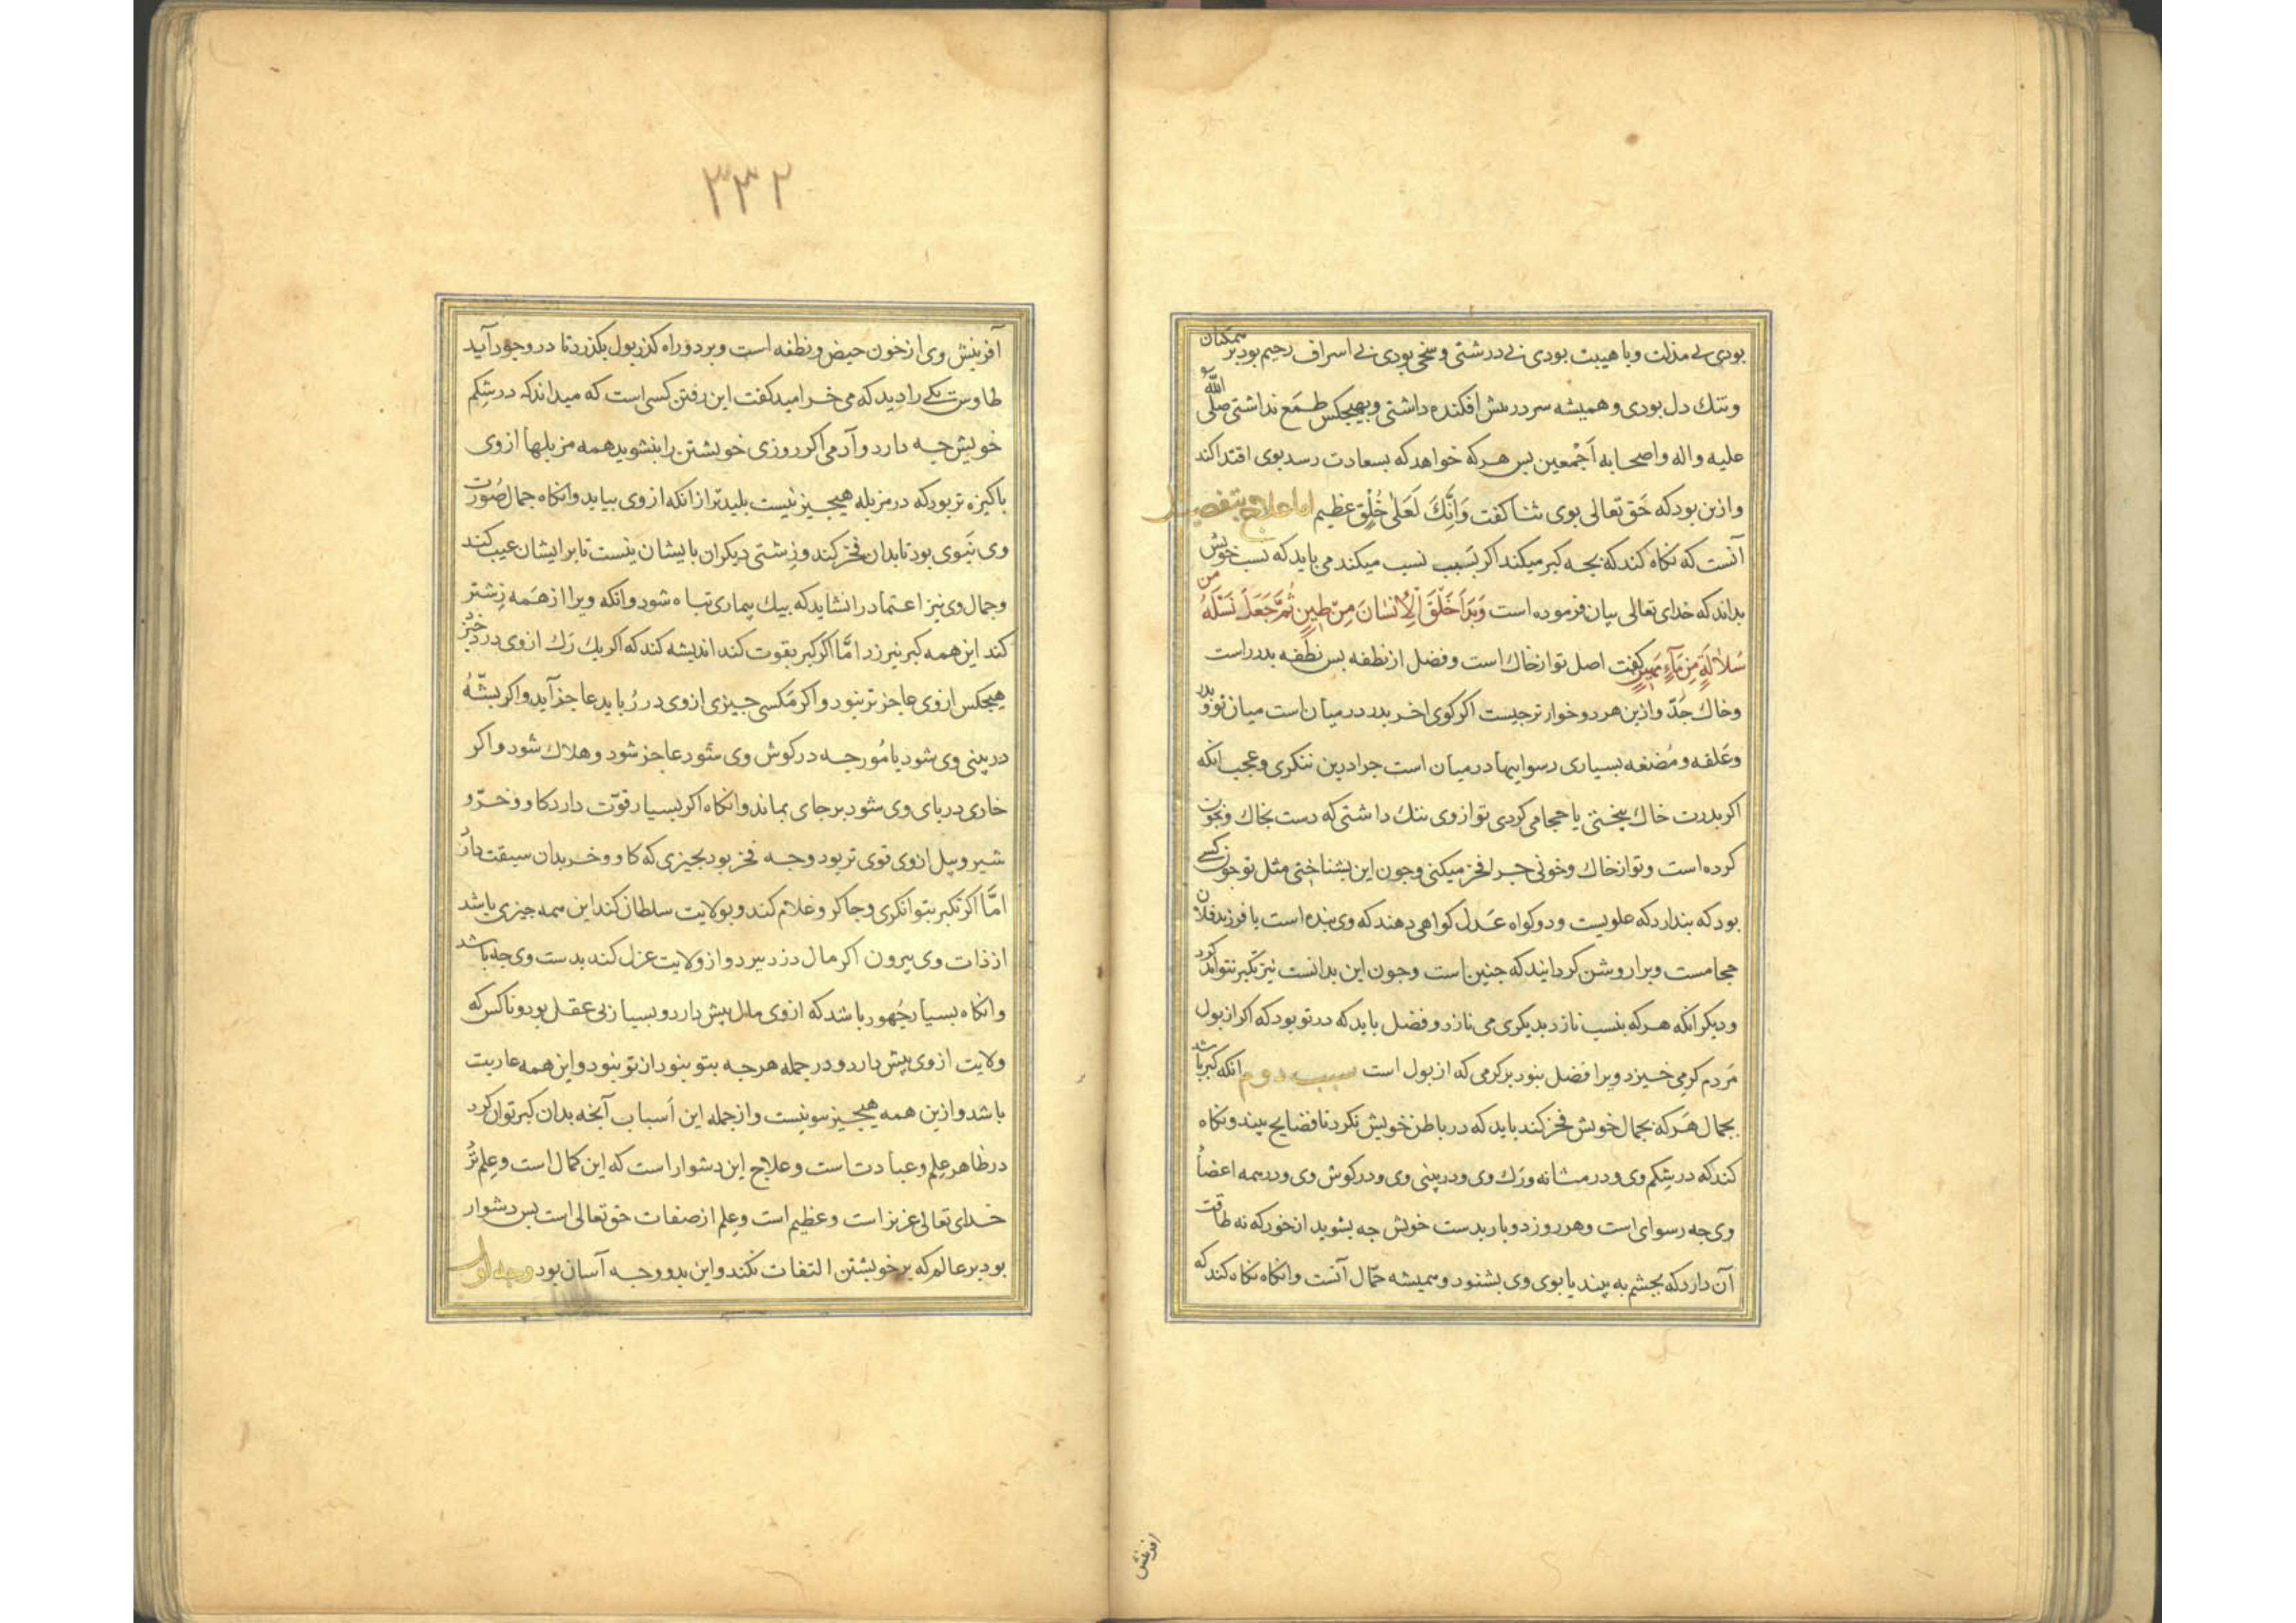 بودی بی مذلت و با هیبت بودی بی درشتی و سخی بودی بی اسراف رحیم بود بر همکنان
و تنك دل بودی و همیشه سر در پیش افکنده داشتی و بهیچکس طمع نداشتی صلی الله
علیه و اله و اصحابه اَجْمعین بس هرکه خواهد که بسعادت رسد بوی اقتدا کند
و ازین بود که حَق تعالی بوی ثنا کفت وَاِنَّكَ لَعَلٰی خُلُقٍ عظیم اما علاج بتفصیل
آنست که نکاه کند که بجه کبر میکند اکر بسَبب نسب میکند می باید که نسب خویش
بداند که خدای تعالی بیان فرموده است وَبَدَاَ خَلْقَ الْاِنْسَانَ مِنْ طِینٍ ثُمَّ جَعَلَ نَسْلَهُ مِن
سُلَالَةٍ مِنْ مَآءٍ مَهِینٍ کفت اصل تو از خاك است و فضل از نطفه بس نطفه بدر است
و خاك جَدّ و ازین هر دو خوارتر جیست اکر کوی اخر بدر در میان است میان تو و بدر
و عَلقه و مُضغه بسیاری رسوایبها در میان است جرا درین ننکری و عجب انکه
اکر بدرت خاك بیختی یا حجامی کردی تو از وی ننك داشتی که دست بخاك و بخون
کرده است و تو از خاك و خونی جرا فخر میکنی و جون این بشناختی مثل تو جون کسی
بود که بندارد که علویست و دو کواه عَدل کواهی دهند که وی بنده است یا فرزند فلان
حجامست و برا روشن کردانند که جنین است وجون این بدانست نیز تکبر نتواند کرد
و دیکر انکه هرکه بنسب نازد بدیکری می نازد و فضل باید که در تو بود که اکر از بول
مَردم کرمی خیزد ویرا فضل نبود بر کرمی که از بول است سبب دوم انکه کبر باشد
بجمال هَرکه بجمال خویش فخر کند باید که در باطن خویش نکرد تا فضایح بیند و نکاه
کند که در شکم وی و در مثانه و رَك وی و در بینی وی و در کوش وی و در همه اعضاء
وی جه رسوای است و هر روز دو بار بدست خویش جه بشوید از خود که نه طاقت
آن دارد که بجشم به بیند یا بوی وی بشنود و همیشه حمّال آنست و انکاه نکاه کند که
افرینش
٣٣٢
آفرینش وی از خون حیض و نطفه است و بر دو راه کذر بول بکذرد تا در وجود آید
طاوس یکی را دید که می خرامید کفت این رفتن کسی است که میداند که در شِکم
خویش جه دارد و آدمی اکر روزی خویشتن را بنشوید همه مزبلها از وی
باکیزه تر بود که در مزبله هیجیز نیست بلیدتر از انکه از وی بیاید و انکاه جمال صُورت
وی نَبوی بود تا بدان فخر کند و زِشتی دیکران بایشان نیست تا بر ایشان عیب کند
و جمال وی نیز اعتماد را نشاید که بیك بیماری تباه شود و انکه ویرا از همَه زشتر
کند این همه کبر نیرزد امّا اکر کبر بقوت کند اندیشه کند که اکر یك رَك از وی در درد خیزد
هیجکس از وی عاجزتر نبود و اکر مَکسی جیزی از وی در رُباید عاجز آید و اکر بشّهٔ
در بینی وی شود یا مُورجه در کوش وی شود عاجز شود و هلاك شود و اکر
خاری در بای وی شود بر جای بماند و انکاه اکر بسیار قوّت دارد کاو و خر و
شیر و بیل از وی قوی تر بود و جه فخر بود بجیزی که کاو و خر بدان سبقت دارد
امّا اکر تکبر بتوانکری و جاکر و غلام کند و بولایت سلطان کند این همه جیزی باشد
از ذات وی بیرون اکر مال دزد ببرد و از ولایت عزل کند بدست وی جه باشد
و انکاه بسیار جُهود باشد که از وی مال بیش دارد و بسیار بی عقل بود و ناکس که
ولایت از وی بیش دارد و در جمله هرجه بتو نبود ان تو نبود و این همه عاریت
باشد و ازین همه هیجیز سو نیست و از جمله این اَسباب آنجه بدان کبر توان کرد
در ظاهر عِلم و عبادتست و علاج این دشوار است که این کمال است و عِلم نزد
خدای تعالی عزیز است و عظیم است و عِلم از صفات حق تعالی است بس دشوار
بود بر عالم که بر خویشتن التفات نکند و این بدو وجه آسان بود وجه اول